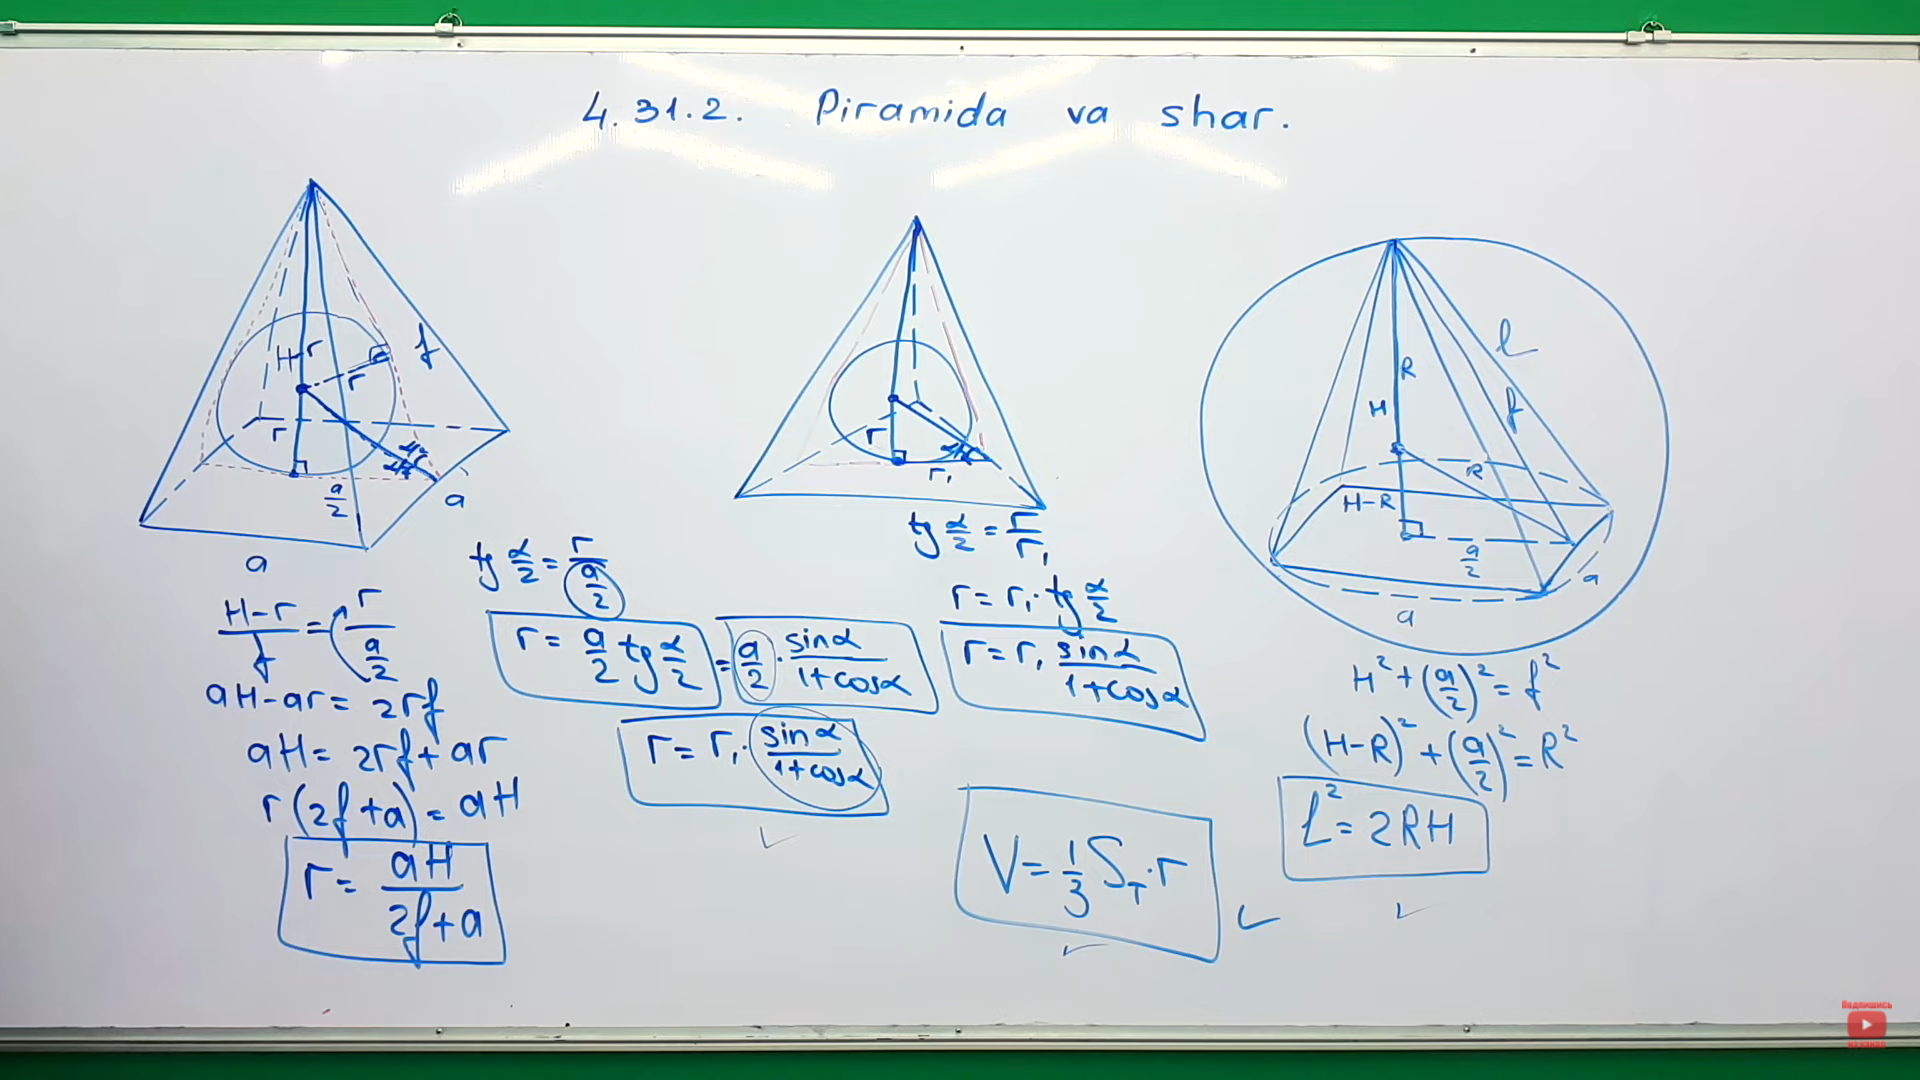 4.31.2. Piramida va shar.
H-r
r
f
r
α/2
α/2
a/2
a
a
(H-r)/f = r/(a/2)
aH-ar = 2rf
aH = 2rf+ar
r(2f+a) = aH
r = aH/(2f+a)
tg α/2 = r/(a/2)
r = a/2 tg α/2 = a/2 · sinα/(1+cosα)
r = r₁ · sinα/(1+cosα)
r
r₁
tg α/2 = r/r₁
r = r₁ · tg α/2
r = r₁ sinα/(1+cosα)
V = 1/3 S_T · r
l
R
H
f
R
H-R
a/2
a
a
H² + (a/2)² = f²
(H-R)² + (a/2)² = R²
L² = 2RH
Подпишись
на канал